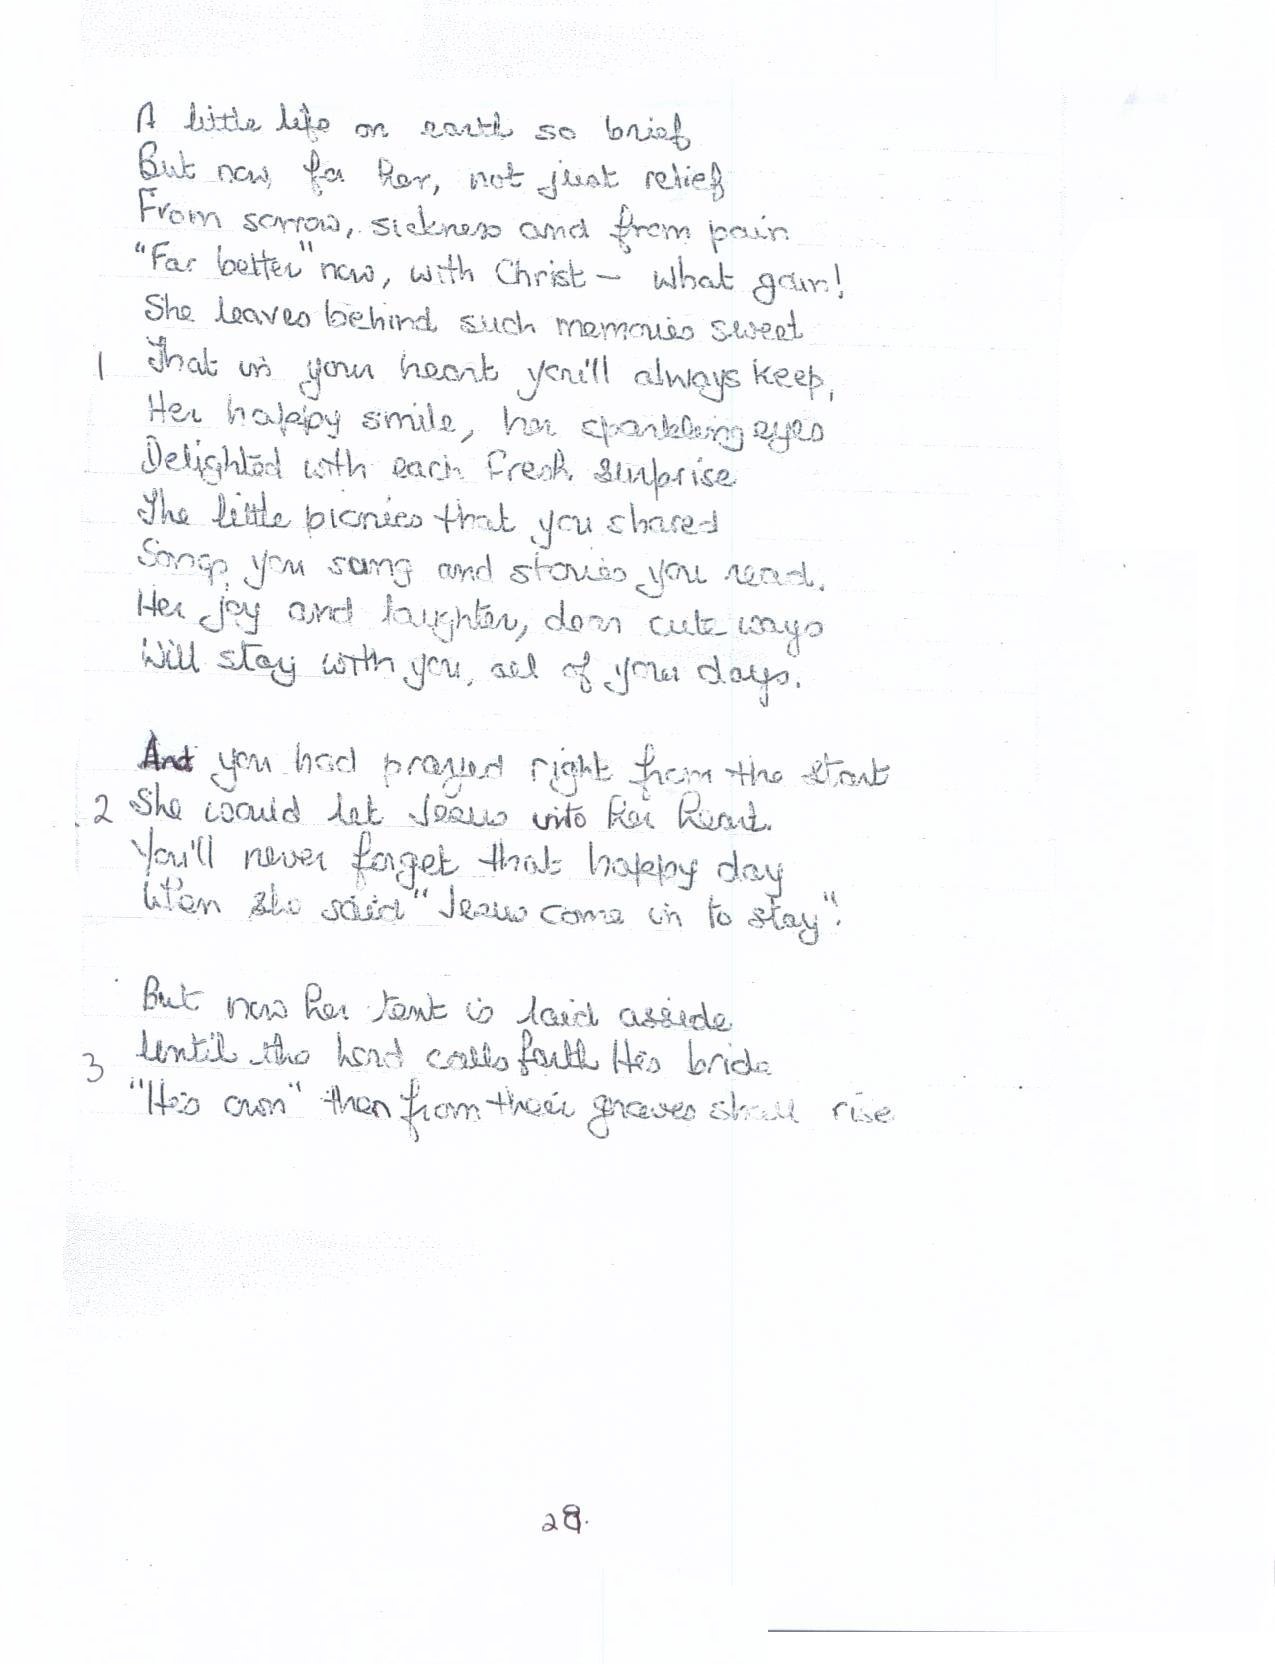 A little life on earth so brief
But now, for her, not just relief
From sorrow, sickness and from pain
"Far better" now, with Christ – what gain!
She leaves behind such memories sweet
1 That in your heart you'll always keep,
Her happy smile, her sparkling eyes
Delighted with each fresh surprise
The little picnics that you shared
Songs you sang and stories you read.
Her joy and laughter, dear cute ways
Will stay with you, all of your days.
And you had prayed right from the start
2 She would let Jesus into her heart.
You'll never forget that happy day
When she said "Jesus come in to stay".
But now her tent is laid asside
3 Until the Lord calls forth His bride
"His own" then from their graves shall rise
28.